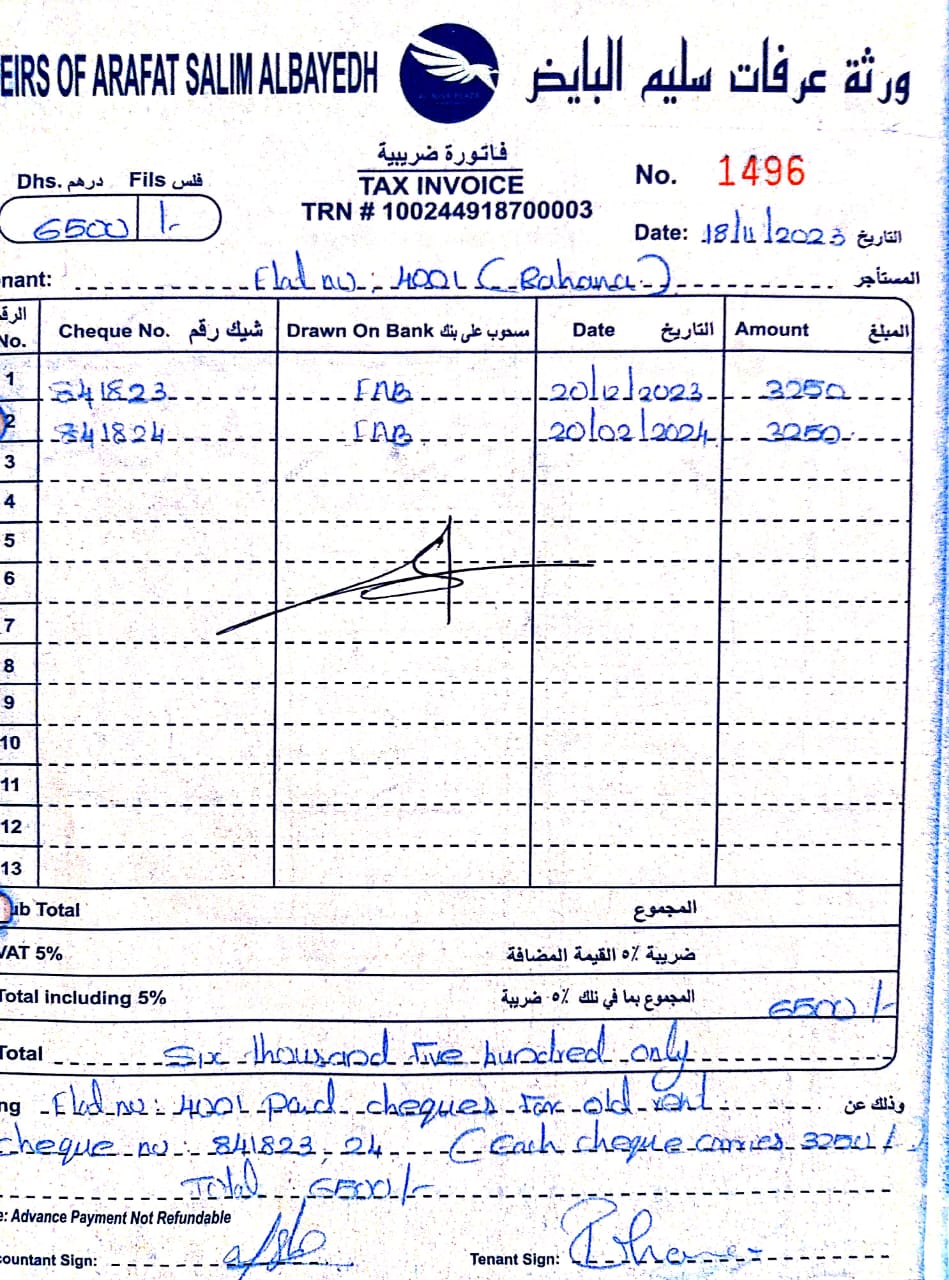 EIRS OF ARAFAT SALIM ALBAYEDH ورثة عرفات سليم البايض
فاتورة ضريبية
TAX INVOICE
TRN # 100244918700003
Dhs. درهم Fils فلس
6500 /-
No. 1496
Date: 18/11/2023 التاريخ
nant: Flat no: 4001 (Rahana) المستأجر
الرق No. Cheque No. شيك رقم Drawn On Bank مسحوب على بنك Date التاريخ Amount المبلغ
1 841823 FAB 20/12/2023 3250
2 841824 FAB 20/02/2024 3250
3
4
5
6
7
8
9
10
11
12
13
ub Total المجموع
VAT 5% ضريبة ٥٪ القيمة المضافة
Total including 5% المجموع بما في ذلك ٥٪ ضريبة 6500/-
Total Six thousand five hundred only
ng Flat no: 4001 paid cheques for old rent وذلك عن
cheque no: 841823, 24 (Each cheque carries 3250/-)
Total 6500/-
e: Advance Payment Not Refundable
countant Sign:
Tenant Sign: